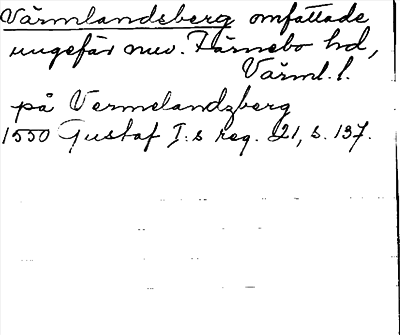 Värmlandsberg omfattade
ungefär nuv. Färnebo hd,
Värml. l.
på Vermelandzberg
1550 Gustaf I:s reg. 21, s. 137.